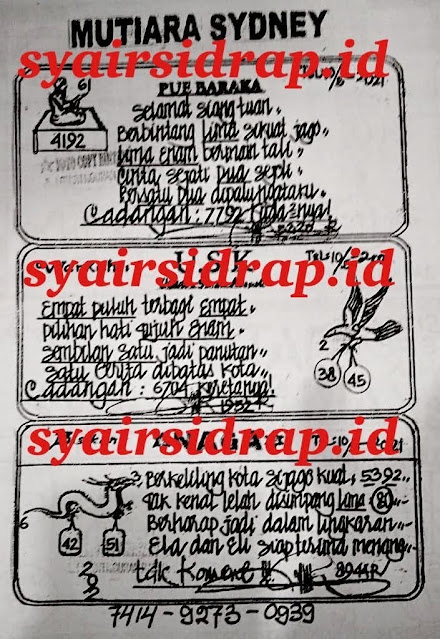 MUTIARA SYDNEY
syairsidrap.id
61
PUE BARAKA
4192
Selamat siang tuan
Berbintang lima sikuat jago
lima enam bermain tali
Cinta sejati dua sejoli
Bersatu dua
Cadangan : 7792
syairsidrap.id
Empat puluh terbagi empat
pilihan hati tujuh enam
Sembilan satu jadi panutan
Satu cerita dibatas kota
Cadangan : 6704 keretanya!
1932 R
2
38 45
syairsidrap.id
Berkeliling kota sijago kuat, 5392
Tak kenal lelah ditumpang lima 81
Berharap jadi dalam lingkaran
Ela dan Eli siap terima menang
tdk Koment !!!
8944R
3
6
42 51
7414 - 9273 - 0939